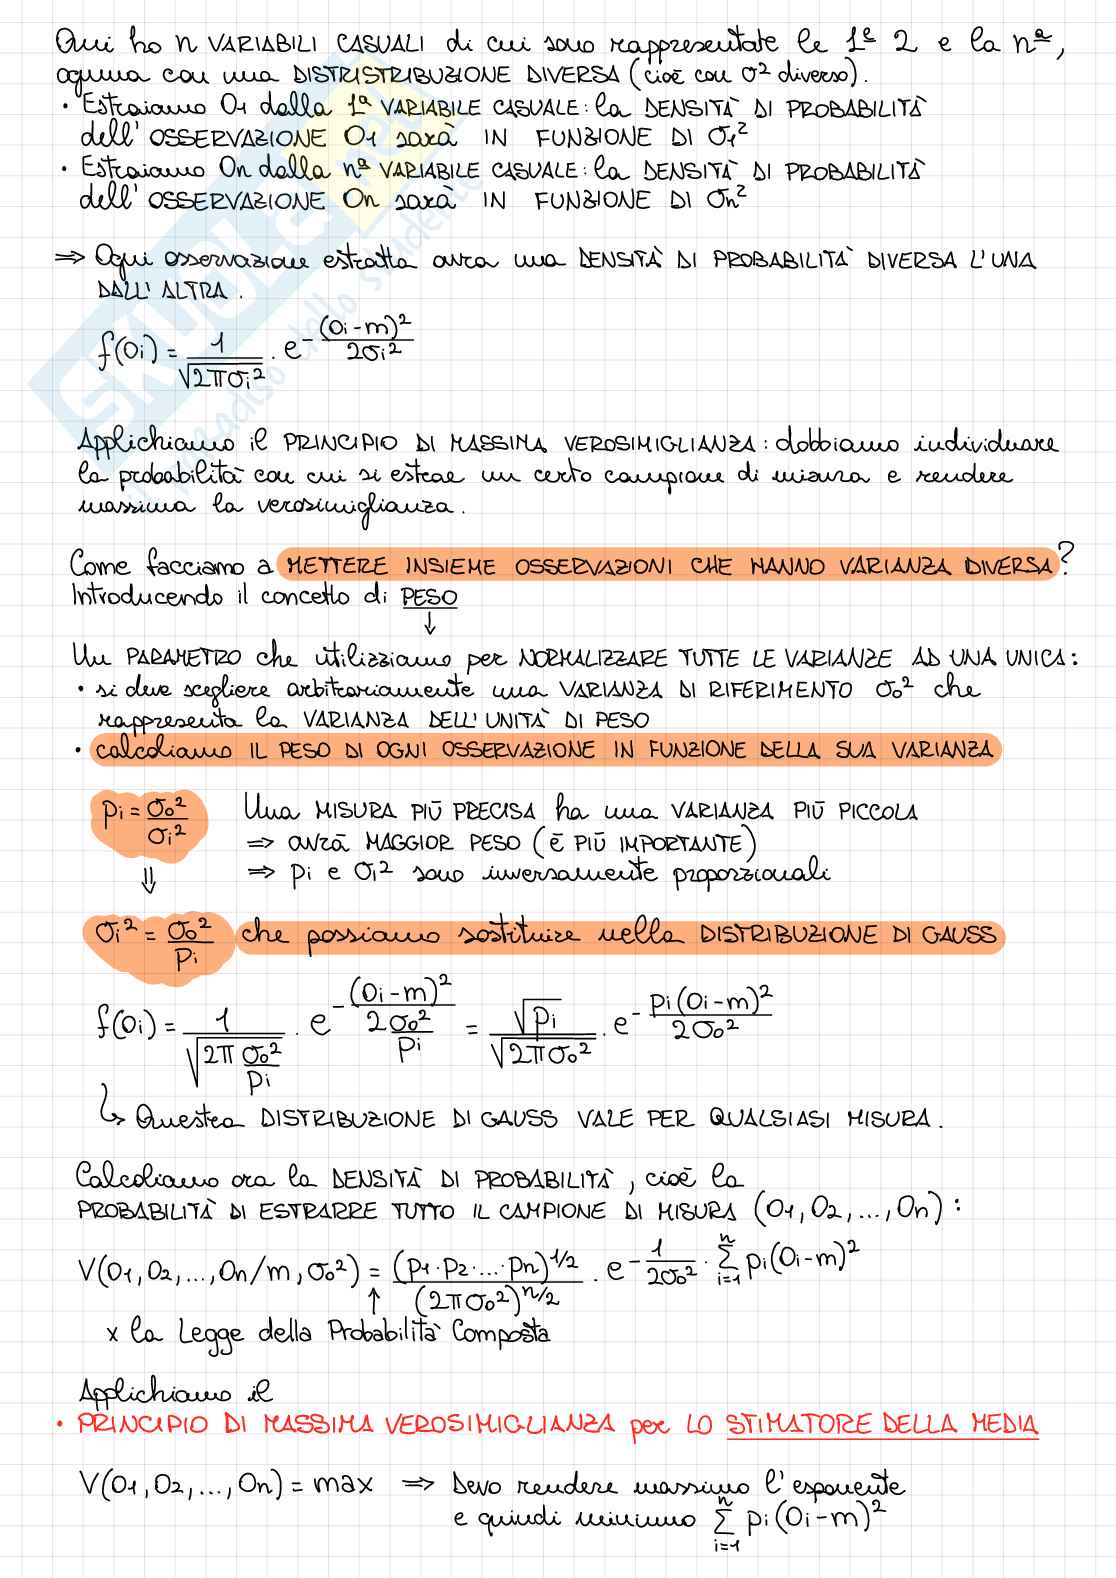 Qui ho n VARIABILI CASUALI di cui sono rappresentate le 1ª 2 e la nª,
ognuna con una DISTRISTRIBUZIONE DIVERSA (cioè con σ² diverso).
• Estraiamo O1 dalla 1ª VARIABILE CASUALE: la DENSITÀ DI PROBABILITÀ
dell'OSSERVAZIONE O1 sarà IN FUNZIONE DI σ1²
• Estraiamo On dalla nª VARIABILE CASUALE: la DENSITÀ DI PROBABILITÀ
dell'OSSERVAZIONE On sarà IN FUNZIONE DI σn²
⇒ Ogni osservazione estratta avra una DENSITÀ DI PROBABILITÀ DIVERSA L'UNA
DALL'ALTRA.
f(Oi) = 1/√(2πσi²) · e^(-(Oi-m)²/2σi²)
Applichiamo il PRINCIPIO DI MASSIMA VEROSIMIGLIANZA: dobbiamo individuare
la probabilità con cui si estrae un certo campione di misura e rendere
massima la verosimiglianza.
Come facciamo a METTERE INSIEME OSSERVAZIONI CHE HANNO VARIANZA DIVERSA?
Introducendo il concetto di PESO
↓
Un PARAMETRO che utilizziamo per NORMALIZZARE TUTTE LE VARIANZE AD UNA UNICA:
• si deve scegliere arbitrariamente una VARIANZA DI RIFERIMENTO σo² che
rappresenta la VARIANZA DELL'UNITÀ DI PESO
• calcoliamo IL PESO DI OGNI OSSERVAZIONE IN FUNZIONE DELLA SUA VARIANZA
pi = σo²/σi² Una MISURA PIÙ PRECISA ha una VARIANZA PIÙ PICCOLA
⇒ avrà MAGGIOR PESO (È PIÙ IMPORTANTE)
⇓ ⇒ pi e σi² sono inversamente proporzionali
σi² = σo²/pi che possiamo sostituire nella DISTRIBUZIONE DI GAUSS
f(Oi) = 1/√(2π σo²/pi) · e^(-(Oi-m)²/(2 σo²/pi)) = √pi/√(2πσo²) · e^(-pi(Oi-m)²/2σo²)
↳ Questra DISTRIBUZIONE DI GAUSS VALE PER QUALSIASI MISURA.
Calcoliamo ora la DENSITÀ DI PROBABILITÀ, cioè la
PROBABILITÀ DI ESTRARRE TUTTO IL CAMPIONE DI MISURA (O1, O2, ..., On):
V(O1, O2, ..., On/m, σo²) = (p1·p2·...·pn)^(1/2)/(2πσo²)^(n/2) · e^(-1/2σo² · Σ_{i=1}^{n} pi(Oi-m)²)
↑
x la Legge della Probabilità Composta
Applichiamo il
• PRINCIPIO DI MASSIMA VEROSIMIGLIANZA per LO STIMATORE DELLA MEDIA
V(O1, O2, ..., On) = max ⇒ Devo rendere massimo l'esponente
e quindi minimo Σ_{i=1}^{n} pi(Oi-m)²